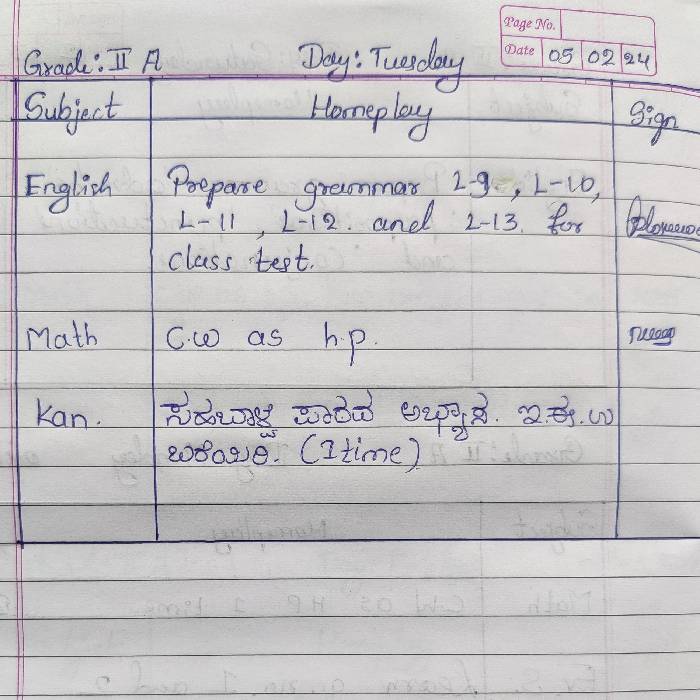 Page No.
Date 05 02 24
Grade: II A Day: Tuesday
Subject Homeplay Sign
English Prepare grammar L-9, L-10,
L-11, L-12. and L-13. for
class test.
Math C.W as h.p.
Kan. ಸಹಬಾಳ್ವೆ ಪಾಠದ ಅಭ್ಯಾಸ. ಇ.ಈ.ಉ
ಬರೆಯಿರಿ. (1time)